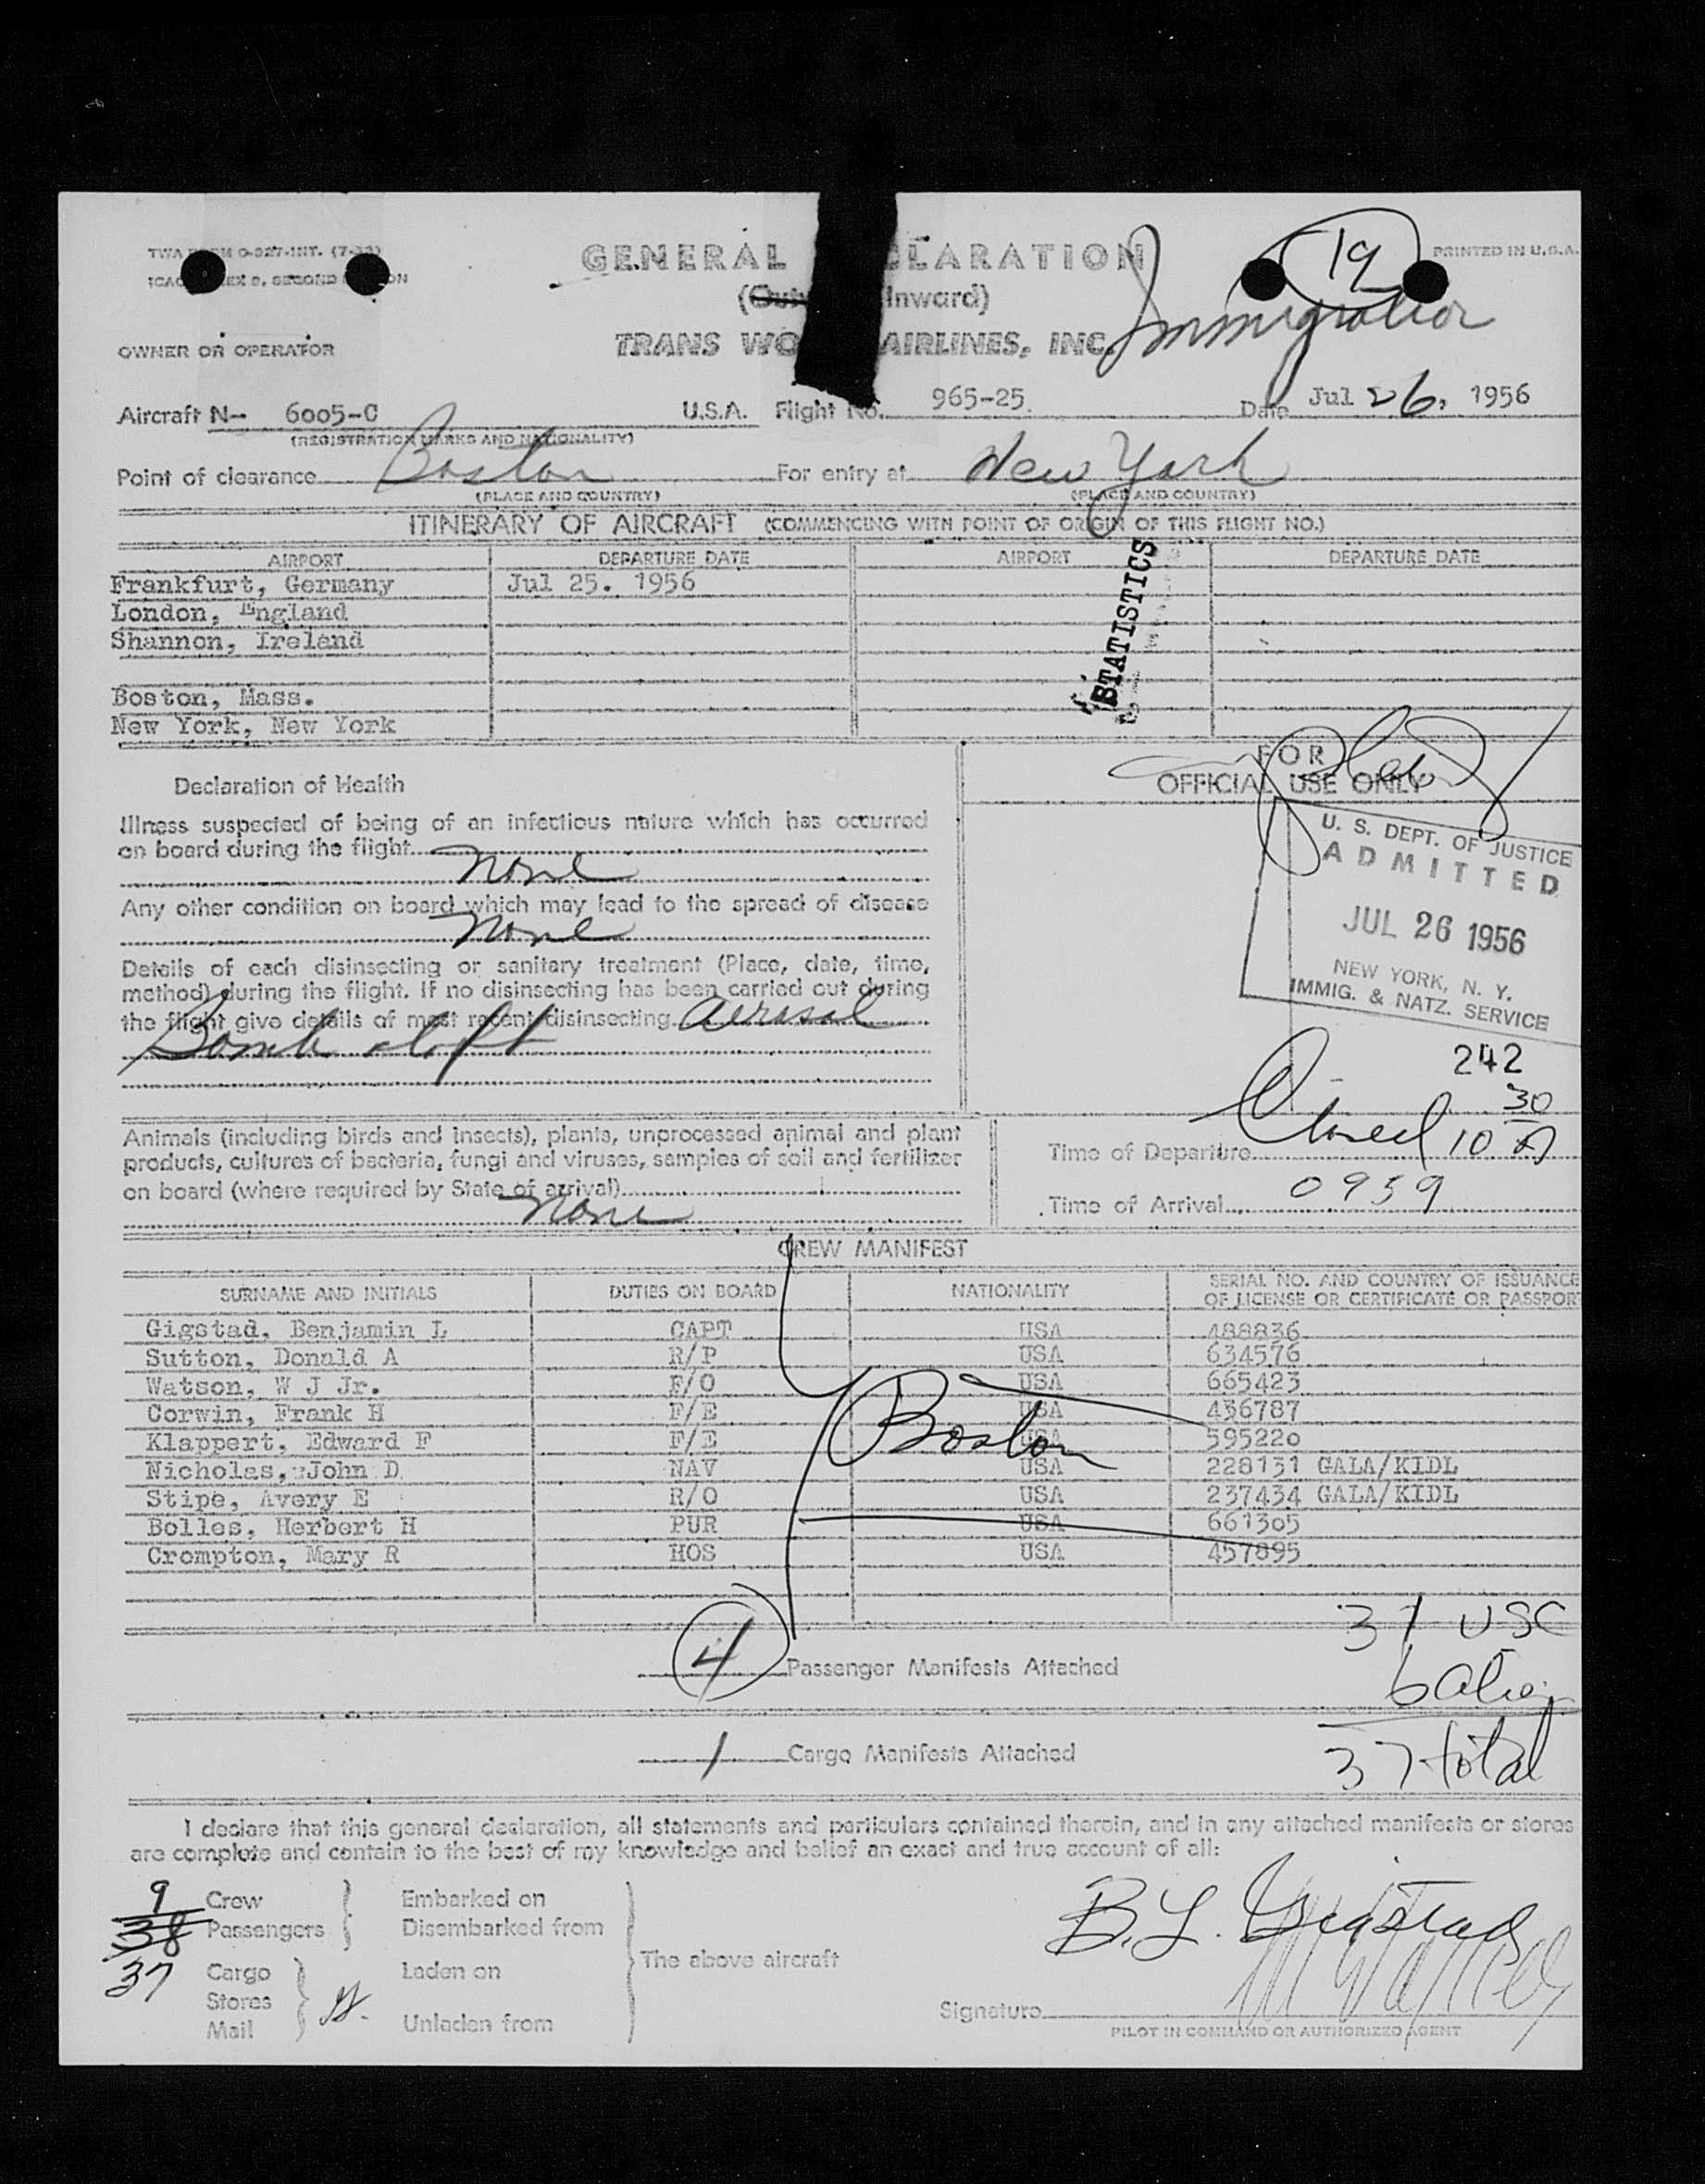 GENERAL
LARATION
19
PRINTED IN U.S.A.
Inward)
Immigration
OWNER OR OPERATOR
TRANS WO AIRLINES, INC.
Aircraft N- 6005-C U.S.A. Flight No. 965-25 Date Jul 26, 1956
(REGISTRATION MARKS AND NATIONALITY)
Point of clearance Boston For entry at New York
(PLACE AND COUNTRY) (PLACE AND COUNTRY)
ITINERARY OF AIRCRAFT (COMMENCING WITH POINT OF ORIGIN OF THIS FLIGHT NO.)
AIRPORT DEPARTURE DATE AIRPORT DEPARTURE DATE
Frankfurt, Germany Jul 25. 1956
London, England
Shannon, Ireland
Boston, Mass.
New York, New York
STATISTICS
FOR
OFFICIAL USE ONLY
Declaration of Health
Illness suspected of being of an infectious nature which has occurred
on board during the flight None
Any other condition on board which may lead to the spread of disease
None
Details of each disinsecting or sanitary treatment (Place, date, time,
method) during the flight. If no disinsecting has been carried out during
the flight give details of most recent disinsecting Aerosol
Bomb aloft
U. S. DEPT. OF JUSTICE
ADMITTED
JUL 26 1956
NEW YORK, N. Y.
IMMIG. & NATZ. SERVICE
242
Animals (including birds and insects), plants, unprocessed animal and plant
products, cultures of bacteria, fungi and viruses, samples of soil and fertilizer
on board (where required by State of arrival)
None
Closed 10 30 A
Time of Departure
Time of Arrival 0959
CREW MANIFEST
SURNAME AND INITIALS DUTIES ON BOARD NATIONALITY SERIAL NO. AND COUNTRY OF ISSUANCE
OF LICENSE OR CERTIFICATE OR PASSPORT
Gigstad, Benjamin L CAPT USA 488836
Sutton, Donald A R/P USA 634576
Watson, W J Jr. F/O USA 665423
Corwin, Frank H F/E USA 436787
Klappert, Edward F F/E USA 595220
Nicholas, John D NAV USA 228131 GALA/KIDL
Stipe, Avery E R/O USA 237434 GALA/KIDL
Bolles, Herbert H PUR USA 661305
Crompton, Mary R HOS USA 457895
Boston
4 Passenger Manifests Attached
31 USC
6 alien
1 Cargo Manifests Attached
37 total
I declare that this general declaration, all statements and particulars contained therein, and in any attached manifests or stores
are complete and contain to the best of my knowledge and belief an exact and true account of all:
9 Crew Embarked on
38 Passengers Disembarked from
37
The above aircraft
Cargo Laden on
Stores
Mail Unladen from
B. L. Gigstad
Signature
PILOT IN COMMAND OR AUTHORIZED AGENT